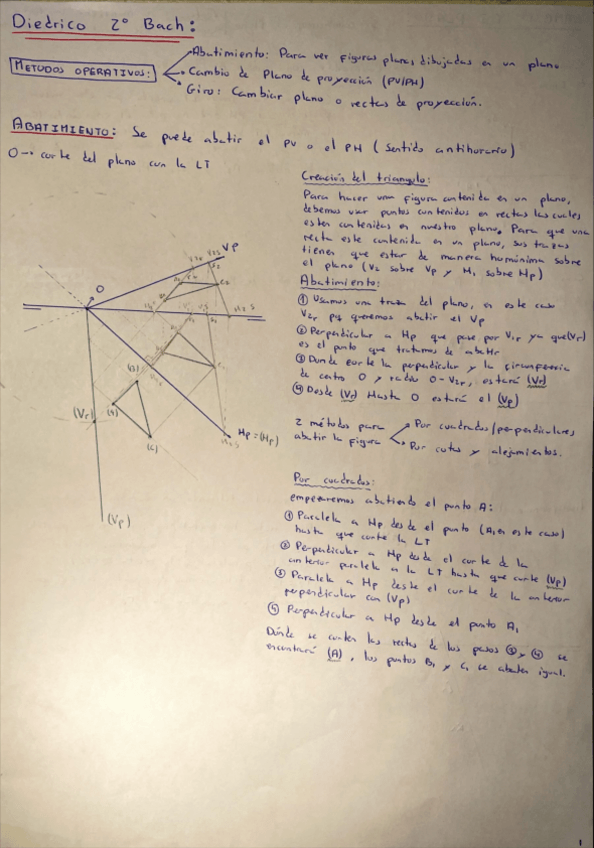 Diedrico 2º Bach:
METODOS OPERATIVOS:
Abatimiento: Para ver figuras planas dibujadas en un plano
Cambio de Plano de proyección (PV/PH)
Giro: Cambiar plano o rectas de proyección.
ABATIMIENTO: Se puede abatir el PV o el PH (Sentido antihorario)
O → corte del plano con la LT
Creación del triangulo:
Para hacer una figura contenida en un plano,
debemos usar puntos contenidos en rectas las cuales
esten contenidas en nuestro plano. Para que una
recta este contenida en un plano, sus trazas
tienen que estar de manera homónima sobre
el plano (V2 sobre Vp y H1 sobre Hp)
Abatimiento:
① Usamos una traza del plano, en este caso
V2r pq queremos abatir el Vp
② Perpendicular a Hp que pase por V1r ya que (Vr)
es el punto que tratamos de abatir
③ Donde corte la perpendicular y la circunferencia
de centro O y radio O-V2r, estará (Vr)
④ Desde (Vr) Hasta O estará el (Vp)
2 métodos para
abatir la figura
Por cuadrados/perpendiculares
Por cotas y alejamientos.
Por cuadrados:
empezaremos abatiendo el punto A:
① Paralela a Hp desde el punto (A1 en este caso)
hasta que corte la LT
② Perpendicular a Hp desde el corte de la
anterior paralela a la LT hasta que corte (Vp)
③ Paralela a Hp desde el corte de la anterior
perpendicular con (Vp)
④ Perpendicular a Hp desde el punto A1
Dónde se corten las rectas de los pasos ③ y ④ se
encontrará (A), los puntos B1 y C1 se abaten igual.
O
Vp
(Vr)
(B)
(A)
(C)
Hp=(Hp)
(Vp)
1